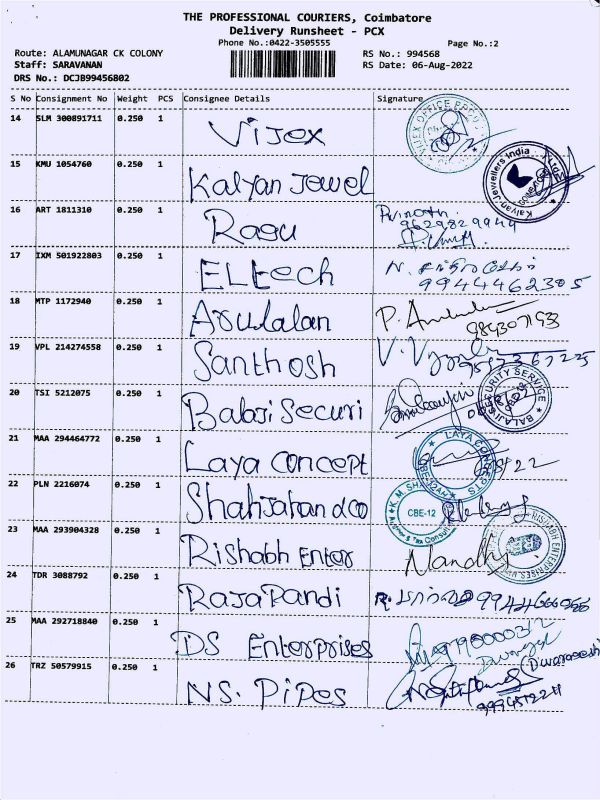 THE PROFESSIONAL COURIERS, Coimbatore
Delivery Runsheet - PCX
Phone No.:0422-3505555
Page No.:2
Route: ALAMUNAGAR CK COLONY
RS No.: 994568
Staff: SARAVANAN
RS Date: 06-Aug-2022
DRS No.: DCJB99456802
S No Consignment No Weight PCS Consignee Details Signature
14 SLM 300891711 0.250 1 Vijex
15 KMU 1054760 0.250 1 Kalyan Jewel
Kalyan Jewellers India
16 ART 1811310 0.250 1 Ragu
9629829944
17 IXM 501922803 0.250 1 ELtech
9944462305
18 MTP 1172940 0.250 1 Arulalan
9843071933
19 VPL 214274558 0.250 1 Santhosh
20 TSI 5212075 0.250 1 Balaji Securi
BALAJI SECURITY SERVICE
21 MAA 294464772 0.250 1 Laya concept
LAYA CONCEPTS
22 PLN 2216074 0.250 1 Shahjahan d co
CBE-12
23 MAA 293904328 0.250 1 Rishabh Enter
Nandhy
RISHABH ENTERPRISES
24 TDR 3088792 0.250 1 RajaPandi
25 MAA 292718840 0.250 1 DS Enterprises
26 TRZ 50579915 0.250 1 NS. Pipes